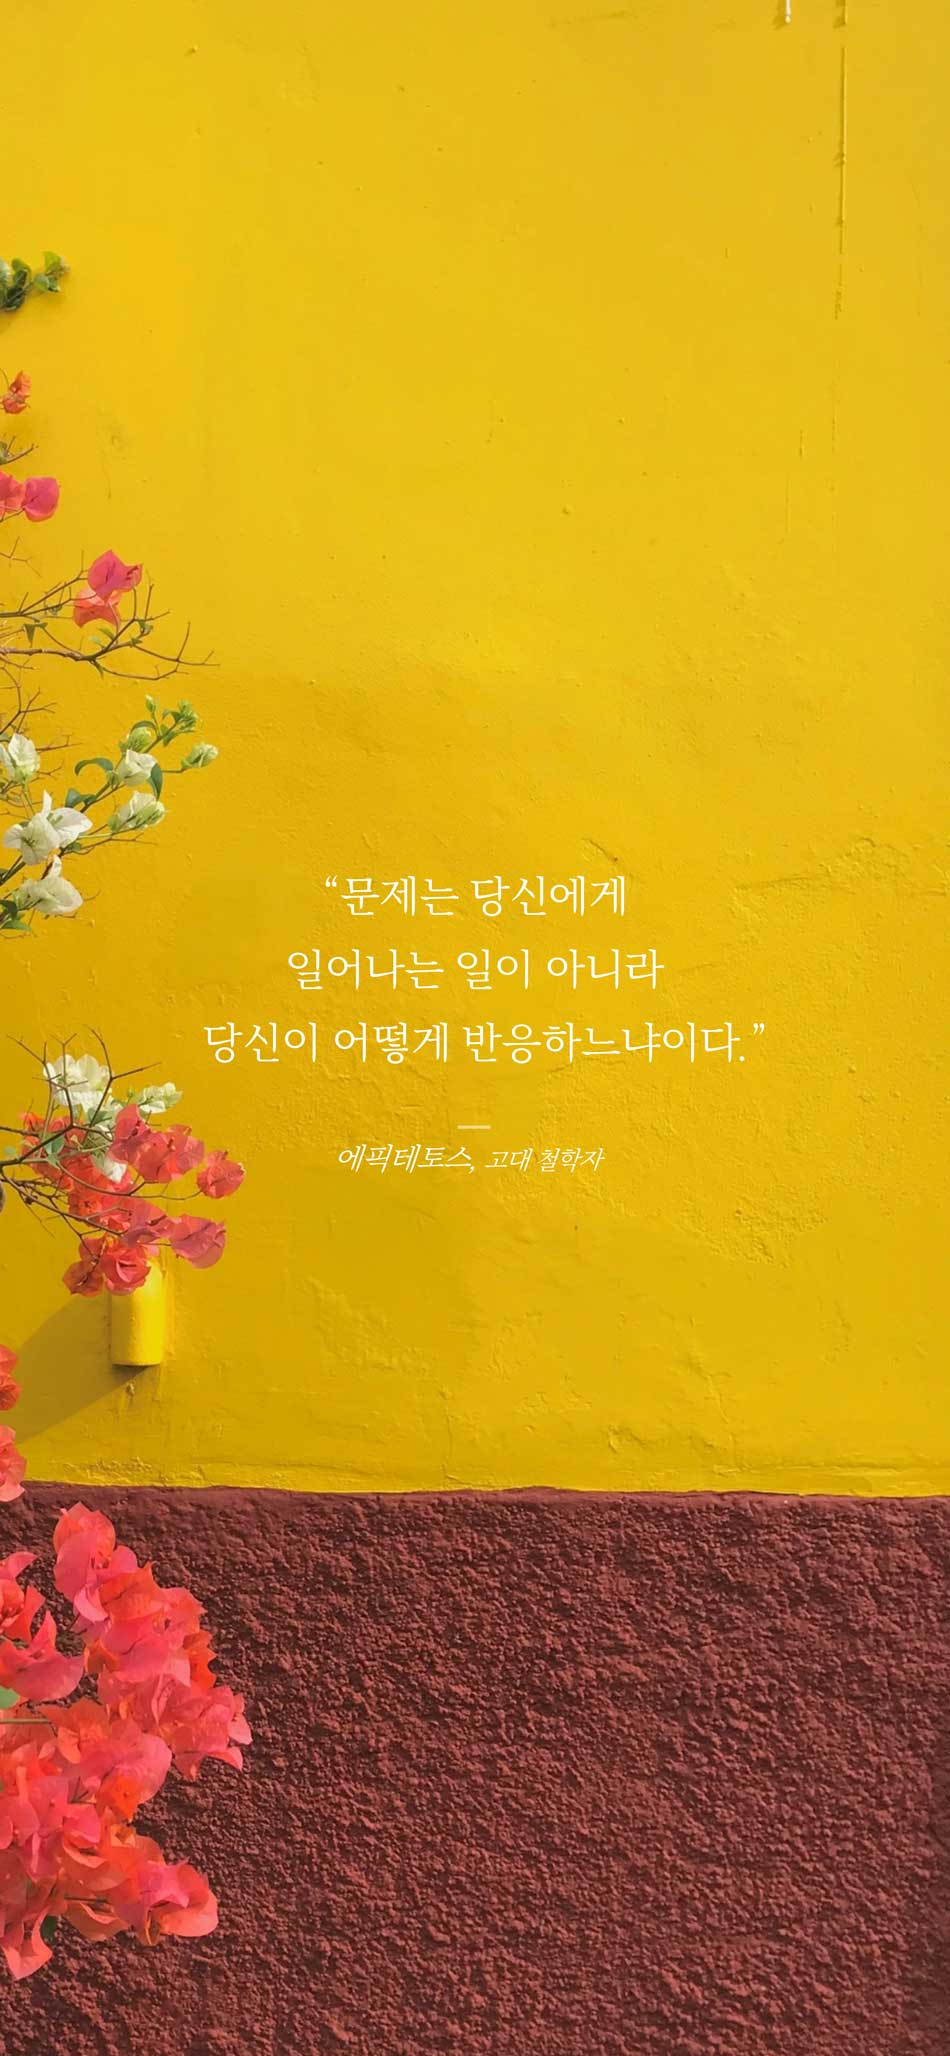 “문제는 당신에게
일어나는 일이 아니라
당신이 어떻게 반응하느냐이다.”
에픽테토스, 고대 철학자